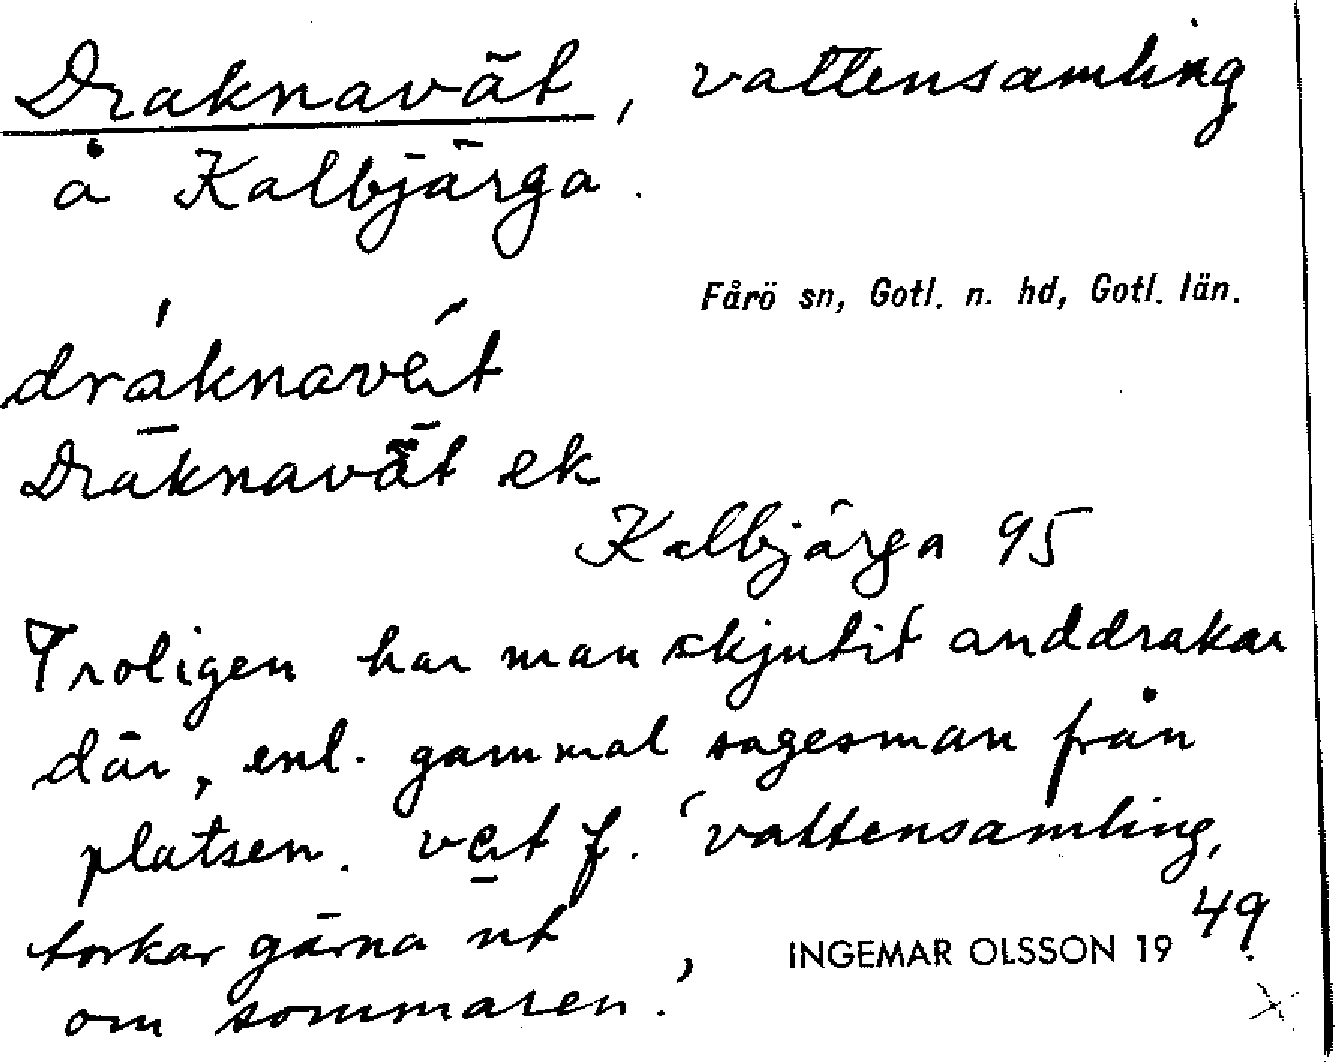 Draknavät, vattensamling
å Kalbjärga.
Fårö sn, Gotl. n. hd, Gotl. län.
dráknavét
Dräknavät ek
Kalbjärga 95
Troligen har man skjutit anddrakar
där, enl. gammal sagesman från
platsen. vet f. 'vattensamling,
torkar gärna ut
om sommaren.'
INGEMAR OLSSON 1949